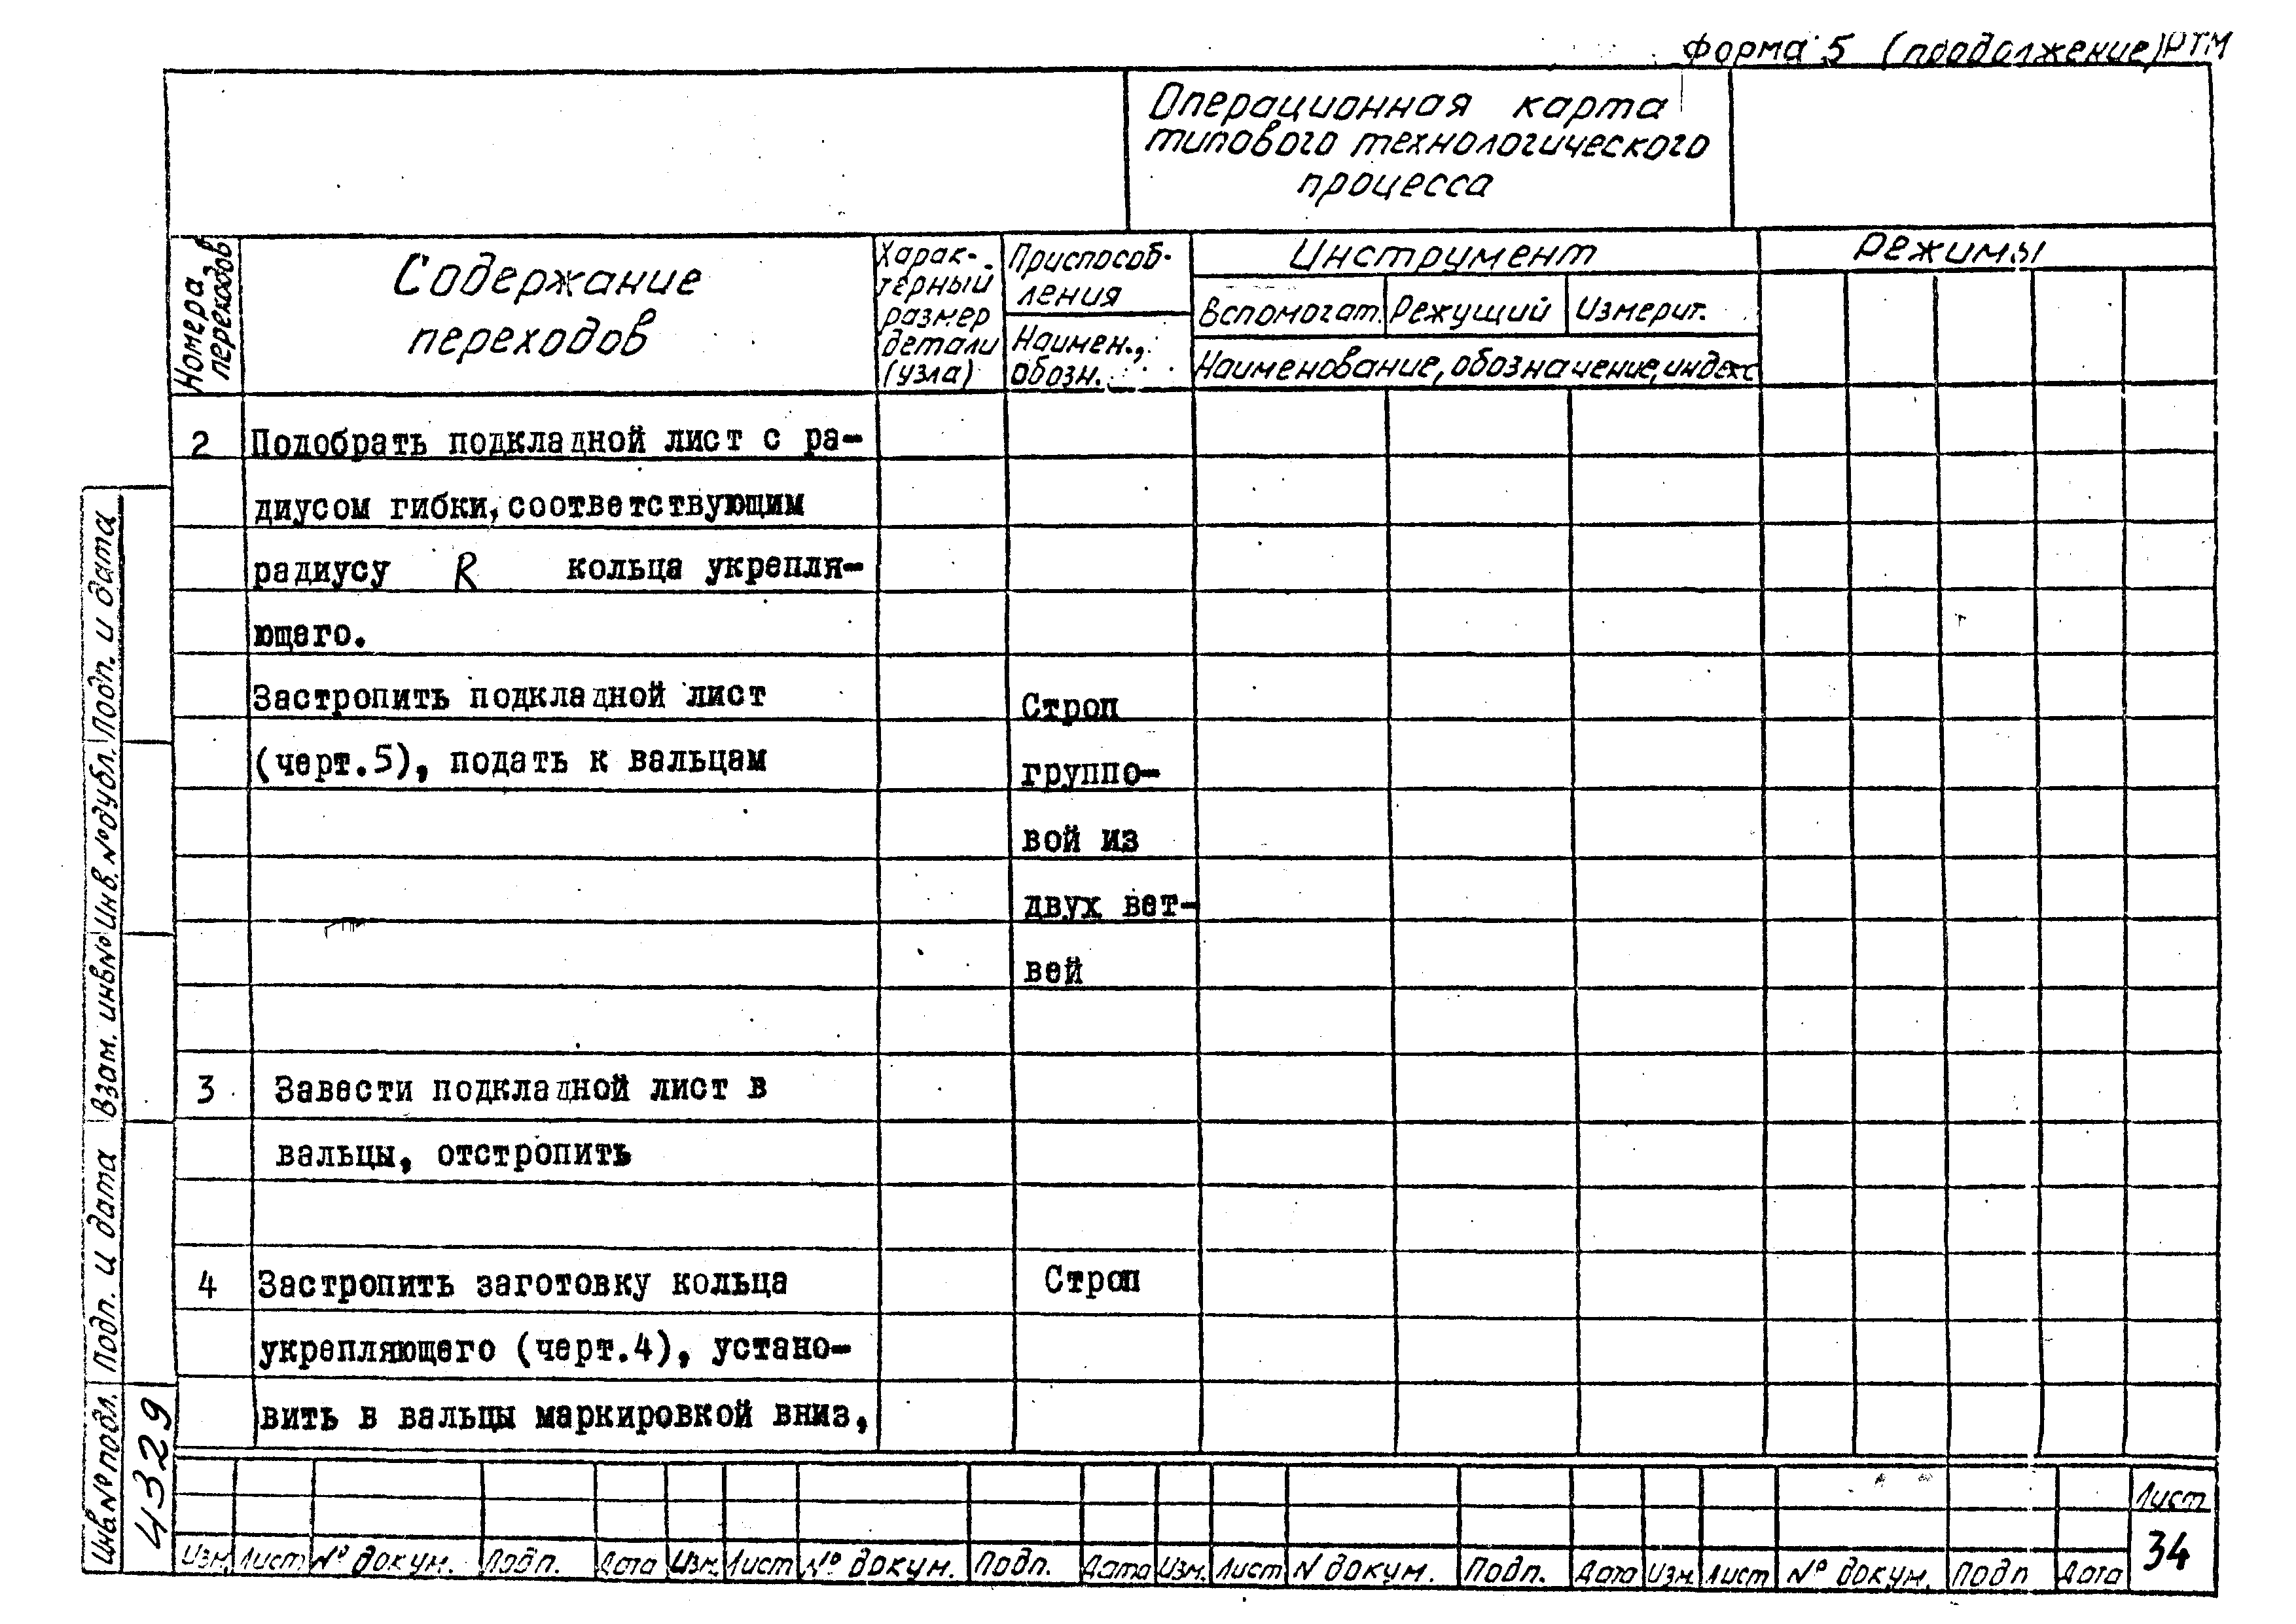 Форма 5 (продолжение) РТМ
Операционная карта
типового технологического
процесса
Номера
переходов
Содержание
переходов
Харак-
терный
размер
детали
(узла)
Приспособ-
ления
Наимен.,
обозн.
Инструмент
Вспомогат. Режущий Измерит.
Наименование, обозначение, индекс
Режимы
2 Подобрать подкладной лист с ра-
диусом гибки, соответствующим
радиусу R кольца укрепля-
ющего.
Застропить подкладной лист Строп
(черт.5), подать к вальцам группо-
вой из
двух вет-
вей
3 Завести подкладной лист в
вальцы, отстропить
4 Застропить заготовку кольца Строп
укрепляющего (черт.4), устано-
вить в вальцы маркировкой вниз,
Инв № подл. Подп. и дата Взам. инв № Инв. № дубл. Подп. и дата
4329
Лист
34
Изм. Лист № докум. Подп. Дата Изм. Лист № докум. Подп. Дата Изм. Лист N докум. Подп. Дата Изм. Лист № докум. Подп Дата